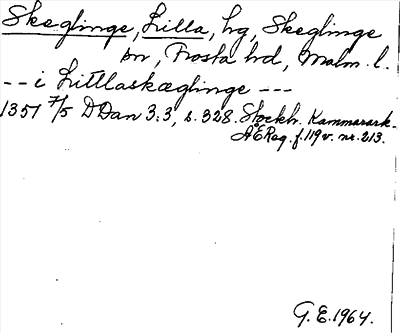 Skeglinge, Lilla, hg, Skeglinge
sn, Frosta hd, Malm. l.
-- i Littlaskæglinge ---
1351 7/5 DDan 3:3, s. 328. Stockh. Kammarark.
ÄEReg. f. 119 v. nr. 213.
G. E. 1964.